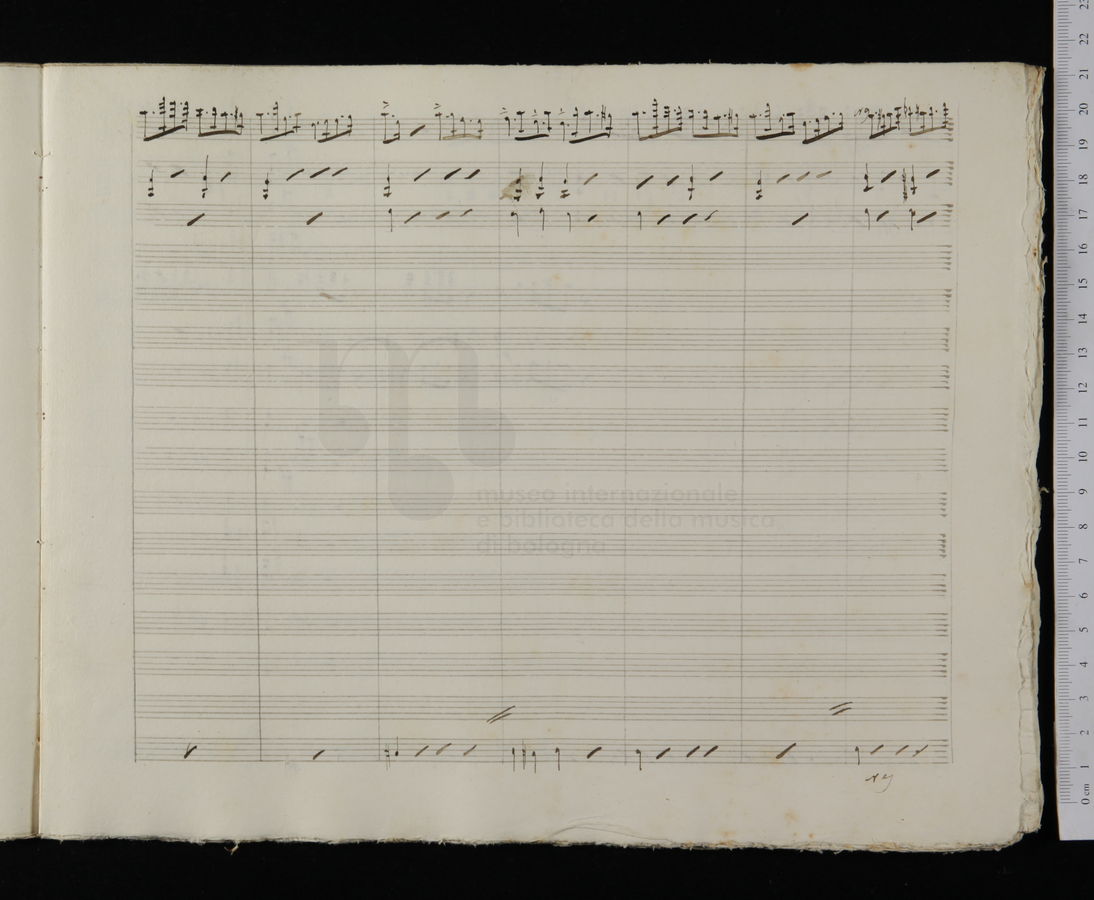 museo internazionale
e biblioteca della musica
di bologna
23
22
21
20
19
18
17
16
15
14
13
12
11
10
9
8
7
6
5
4
3
2
1
0 cm